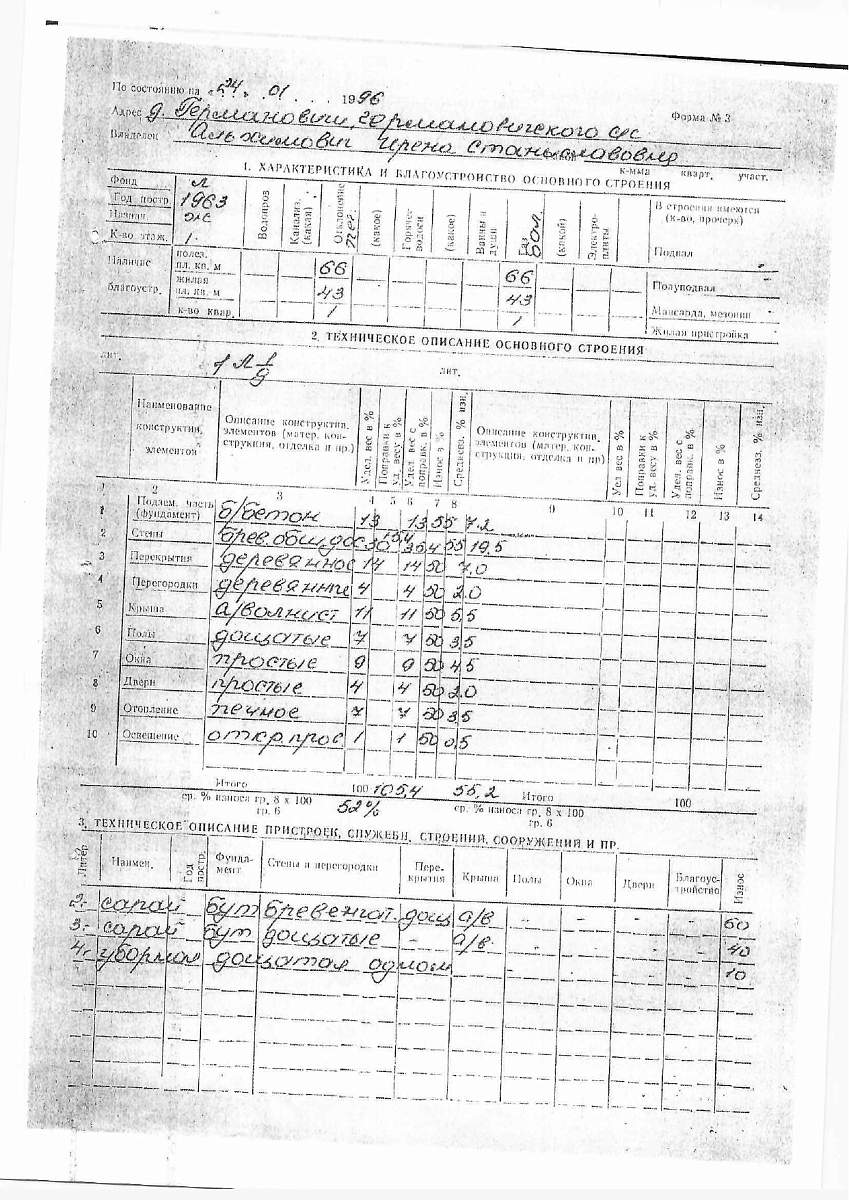 По состоянию на «24» 01 1996
Форма № 3
Адрес д. Германовичи, Германовичского с/с
Владелец Альхимович Ирена Станиславовна
к-мма кварт. участ.
1. ХАРАКТЕРИСТИКА И БЛАГОУСТРОЙСТВО ОСНОВНОГО СТРОЕНИЯ
Фонд Л
Год постр. 1963
Назнач. ж
К-во этаж. 1
Водопров Канализ. (какая) Отклонение печ. (какое) Горячее водосн (какое) Ванны и души Газ бал. (какой) Электро-плиты
В строении имеются (к-во, прочерк)
Подвал -
Полуподвал -
Мансарда, мезонин
Жилая пристройка
Наличие благоустр.
полез. пл. кв. м 66 66
жилая пл. кв. м 43 43
к-во квар. 1 1
2. ТЕХНИЧЕСКОЕ ОПИСАНИЕ ОСНОВНОГО СТРОЕНИЯ
лит. лит.
Наименование конструктив. элементов
Описание конструктив. элементов (матер. конструкция, отделка и пр.)
Удел. вес в % Поправки к уд. весу в % Удел. вес с поправк. в % Износ в % Средневз. % изн.
Описание конструктив. элементов (матер. конструкция, отделка и пр)
Уел вес в % Поправки к уд. весу в % Удел. вес с поправк. в % Износ в % Средневз. % изн.
1 2 3 4 5 6 7 8 9 10 11 12 13 14
1 Подзем. часть (фундамент) б/бетон 13 13 55 7.2
2 Стены брев. обш. дос 30 +5,4 35,4 55 19,5
3 Перекрытия деревянное 14 14 50 7,0
4 Перегородки деревянные 4 4 50 2.0
5 Крыша а/волнист 11 11 50 5,5
6 Полы дощатые 7 7 50 3,5
7 Окна простые 9 9 50 4,5
8 Двери простые 4 4 50 2.0
9 Отопление печное 7 7 50 3,5
10 Освещение откр прос 1 1 50 0,5
Итого 100 105,4 55,2 Итого 100
ср. % износа гр. 8 х 100 гр. 6 52% ср. % износа гр. 8 х 100 гр. 6
3. ТЕХНИЧЕСКОЕ ОПИСАНИЕ ПРИСТРОЕК, СЛУЖЕБН. СТРОЕНИЙ, СООРУЖЕНИЙ И ПР.
Литер Наимен. Год постр. Фундамент Стены и перегородки Перекрытия Крыша Полы Окна Двери Благоустройство Износ
2. сарай бут бревенчат. дощ а/в - - - - 60
3. сарай бут дощатые - а/в - - - - 40
4. уборная дощатая 10